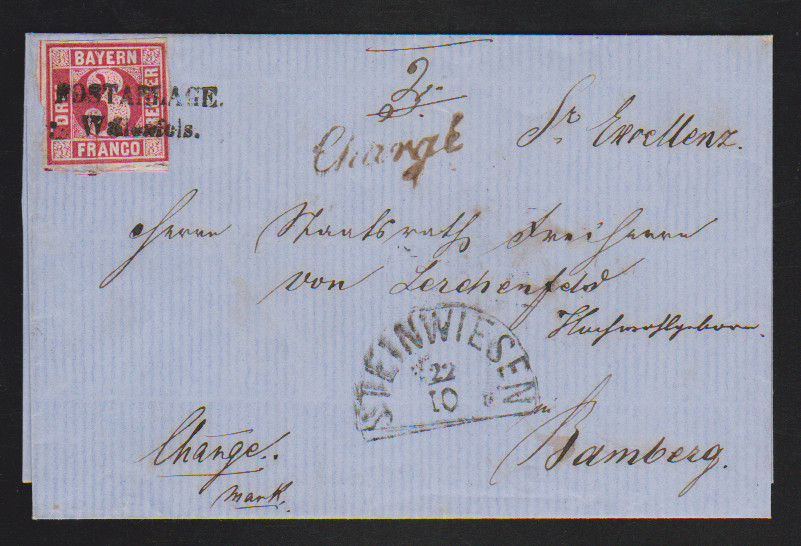 BAYERN
DREI
3
KREUZER
FRANCO
POSTABLAGE.
Wallenfels.
2.
Chargé
Sr Excellenz.
Herrn Staatsrath Freiherrn
von Lerchenfeld
Hochwohlgeborn.
STEINWIESEN
22
10
in
Bamberg.
Charge.